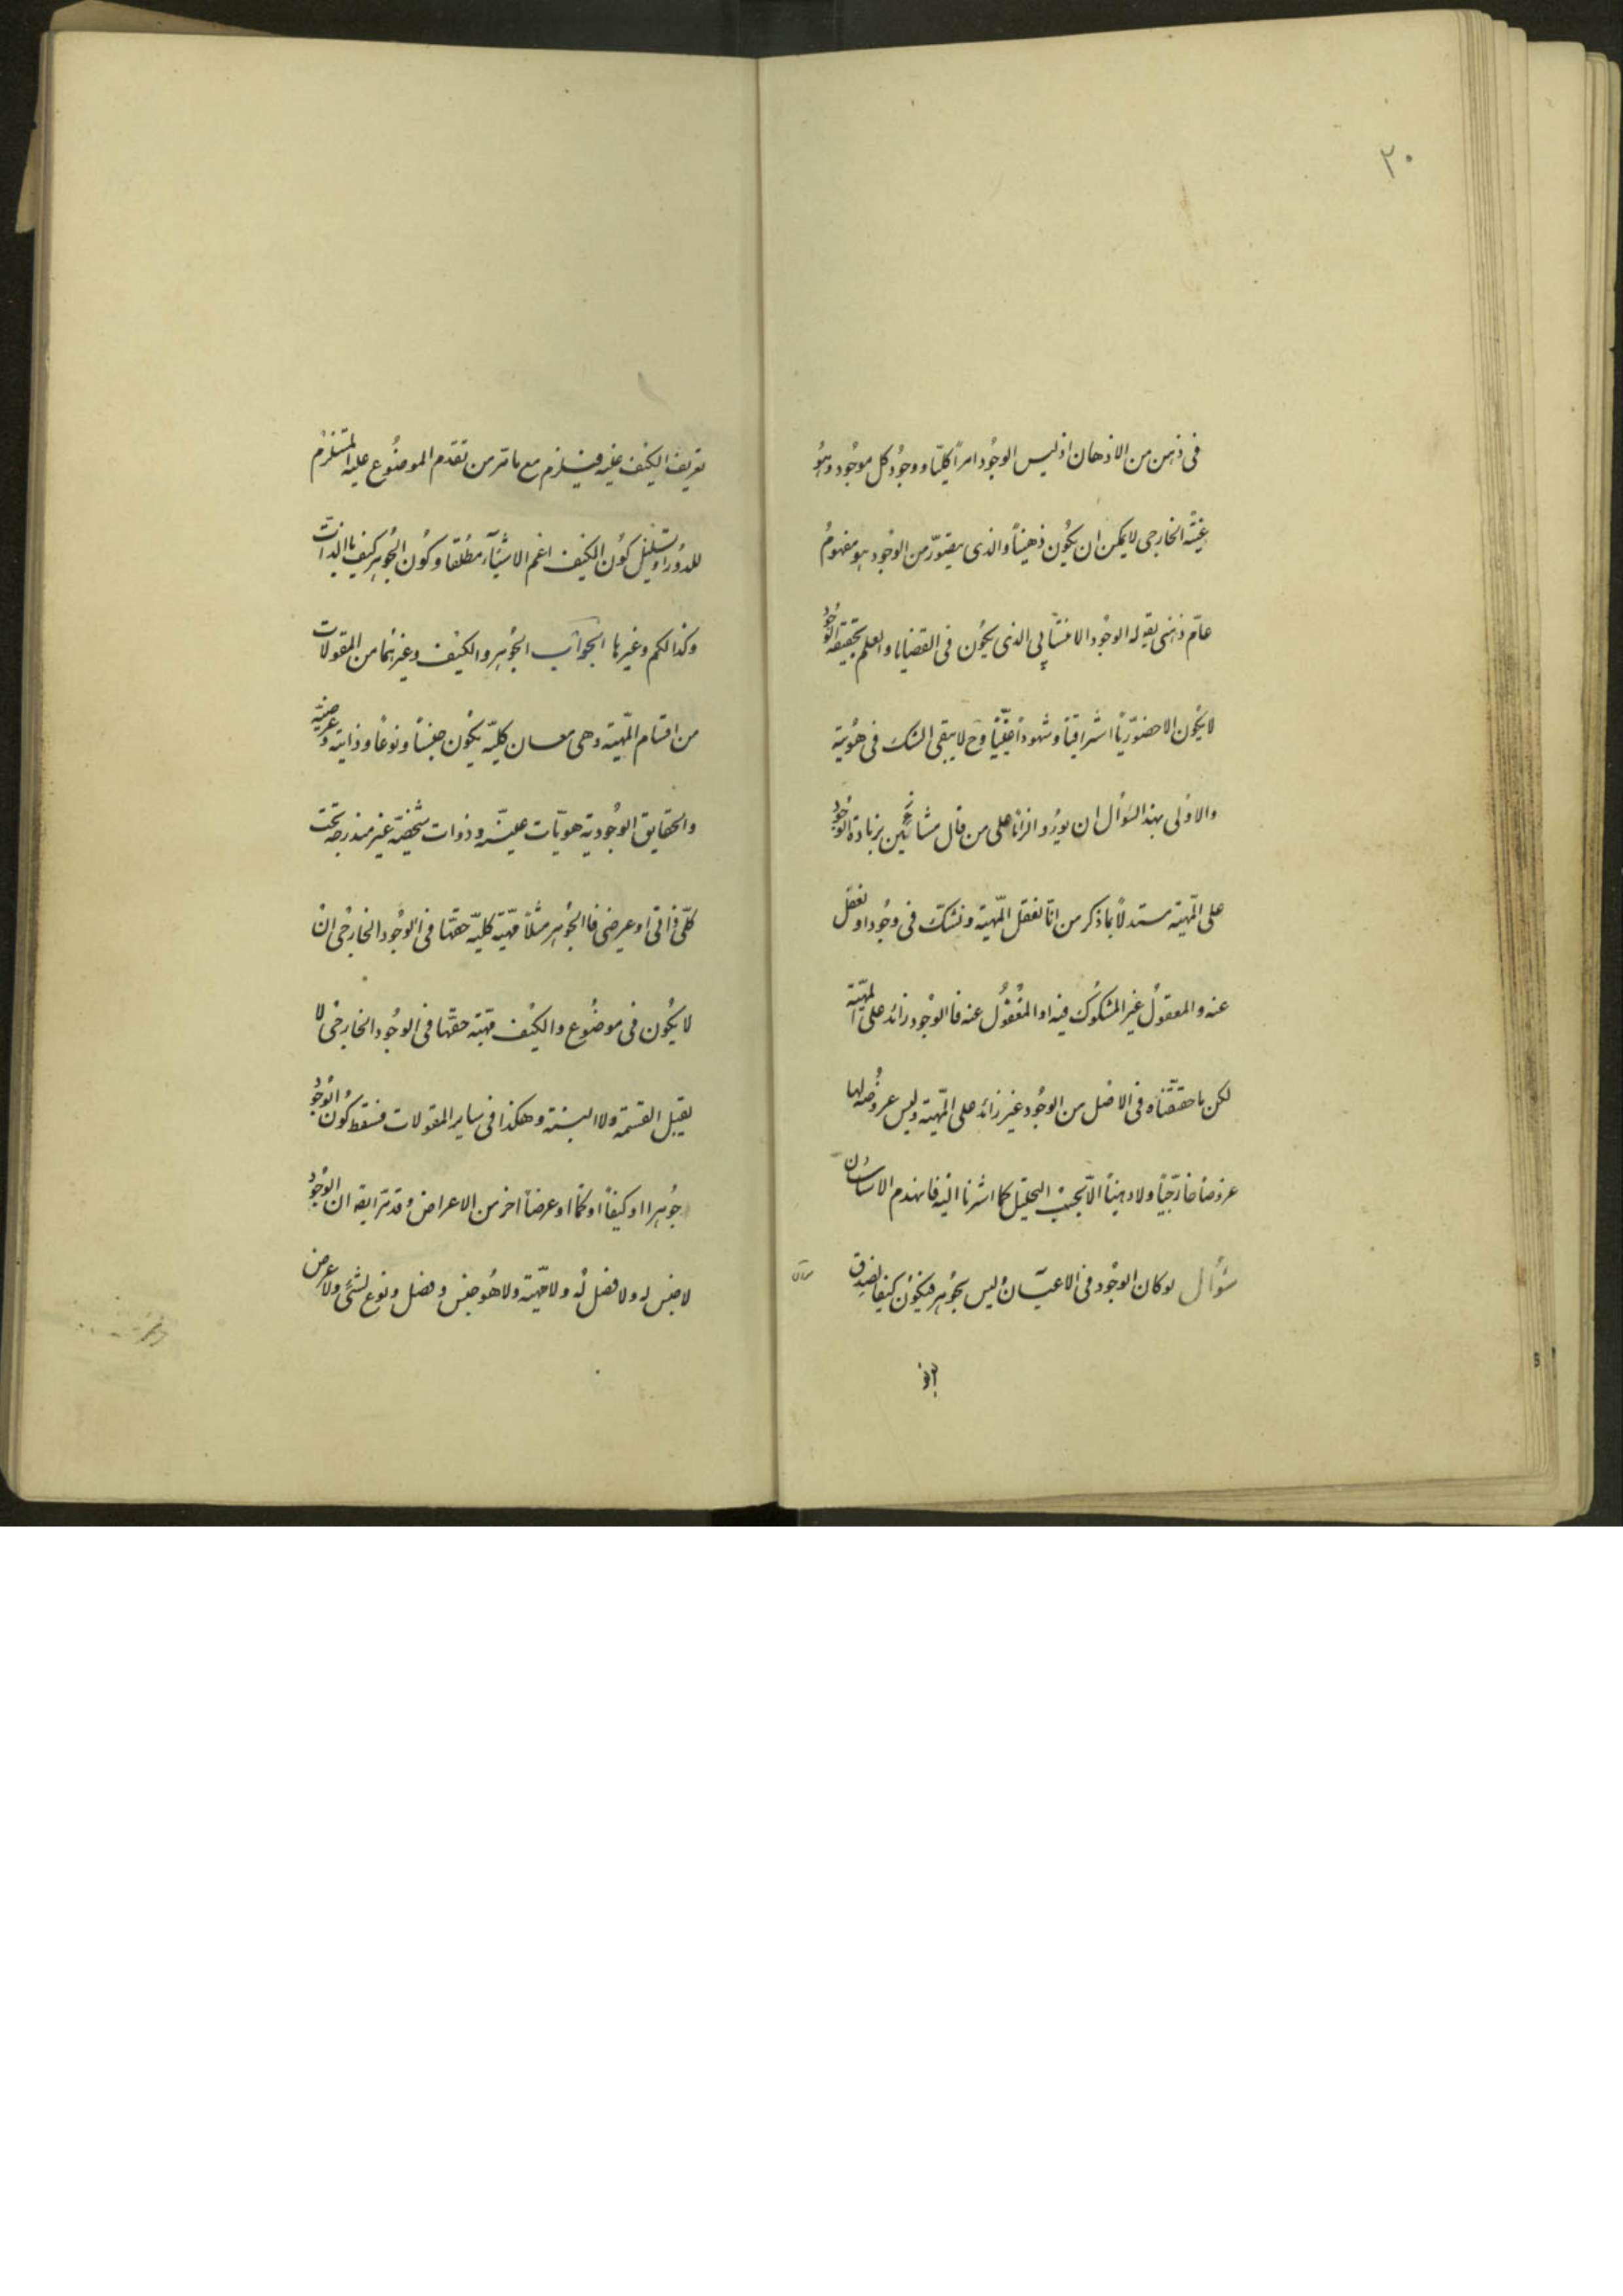 ٢٠
فى ذهن من الاذهان اذ ليس الوجود امراً كليّا ووجود كل موجود هو
عينه الخارجى لا يمكن ان يكون ذهنيّاً والذى يتصوّر من الوجود هو مفهوم
عامّ ذهنى يقو له الوجود الانتسابى الذى يكون فى القضايا والعلم بحقيقة الوجود
لا يكون الا حضوريّاً اشراقيّاً وشهوداً عينيّاً وح لا يبقى الشك فى هويته
والاولى بهذا السؤال ان يورد الزاماً على من قال بزيادة الوجود
على المهيّة مستدلاً بما ذكر من انّا نعقل المهيّة ونشك فى وجود او نغفل
عنه والمعقول غير المشكوك فيه او المغفول عنه فاالوجود زائد على المهيّة
لكن ما حققناه فى الاصل من الوجود غير زائد على المهيّة وليس عروضه لها
عروضا خارجيّاً ولا ذهنياً الاّ بحسب التحليل كما اشرنا اليه فانهدم الاساسان
سؤال لو كان الوجود فى الاعيان وليس بجوهر فيكون كيفا لصدق
تعريف الكيف عليه فيلزم مع ما مرّ من تقدم الموضوع عليه المستلزم
للدور او تسلسل كون الكيف اعم الاشياء مطلقا وكون الجوهر كيف باالذات
وكذا الكم وغيرها الجواب الجوهر والكيف وغيرهما من المقولات
من اقسام المهيّة وهى معان كليّة يكون جنساً ونوعاً وذاتية وعرضية
والحقايق الوجودية هويّات عينيّه وذوات شخصيّة غير مندرجة تحت
كلّى ذاتى او عرضى فاالجوهر مثلاً مهيّة كليّة حقها فى الوجود الخارجى ان
لا يكون فى موضوع والكيف مهيّة حقها فى الوجود الخارجى لا
يقبل القسمة ولا النسبة وهكذا فى ساير المقولات فسقط كون الوجود
جوهرا او كيفاً او كمّا او عرضاً اخر من الاعراض وقد مرّ ايضه ان الوجود
لا جنس له ولا فصل له ولا مهيّة ولا هو جنس وفصل ونوع لشىء ولا عرض